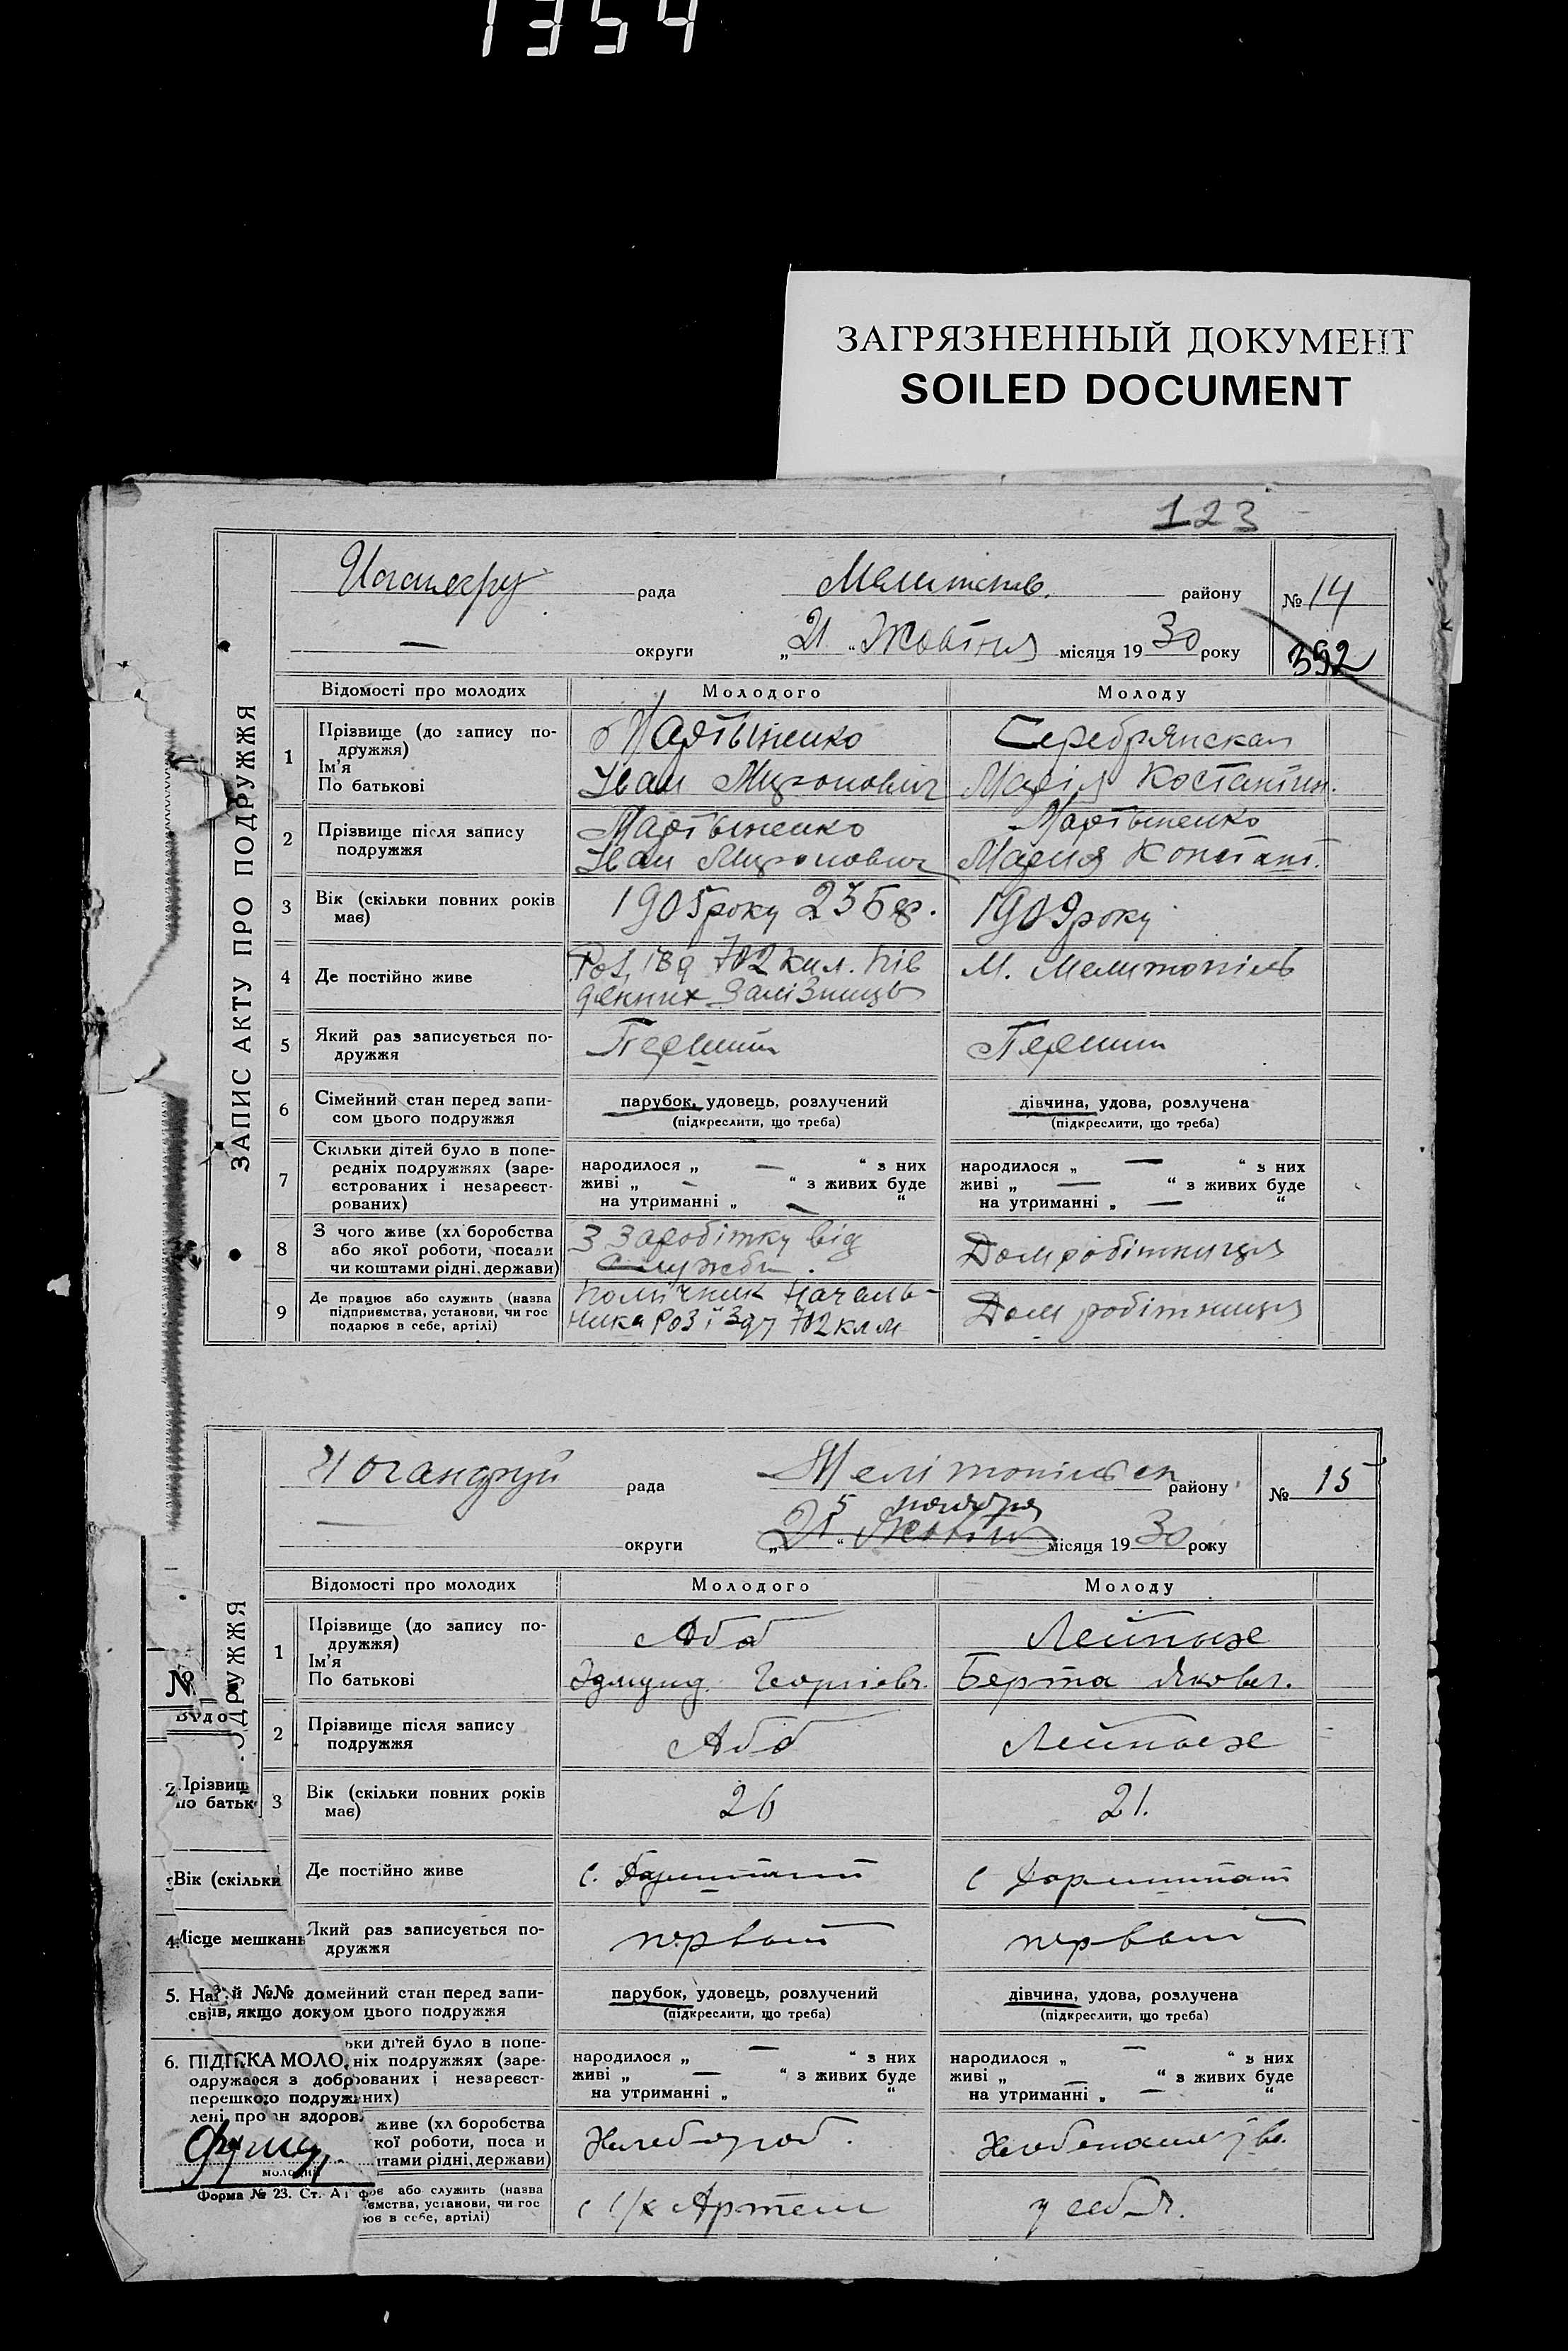 1354
ЗАГРЯЗНЕННЫЙ ДОКУМЕНТ
SOILED DOCUMENT
123
ЗАПИС АКТУ ПРО ПОДРУЖЖЯ
рада Мелитопів. району № 14
— округи „21“ Жовтня місяця 1930 року 392
Відомості про молодих Молодого Молоду
1 Прізвище (до запису по-
дружжя)
Ім'я
По батькові
Мартыненко
Іван Миронович
Серебрянская
Марія Костантин.
2 Прізвище після запису
подружжя
Мартыненко
Іван Миронович
Мартыненко
Мария Констант.
3 Вік (скільки повних років
має)
1905 року 25
1909 року
4 Де постійно живе
Роз'їзд 702 кил. Пів
денних Залізниць
М. Мелитопіль
5 Який раз записується по-
дружжя
Перший
Перший
6 Сімейний стан перед запи-
сом цього подружжя
парубок, удовець, розлучений
(підкреслити, що треба)
дівчина, удова, розлучена
(підкреслити, що треба)
7 Скільки дітей було в попе-
редніх подружжях (заре-
єстрованих і незареєст-
рованих)
народилося „ — “ з них
живі „ — “ з живих буде
на утриманні „ — “
народилося „ — “ з них
живі „ — “ з живих буде
на утриманні „ — “
8 З чого живе (хл боробства
або якої роботи, посади
чи коштами рідні, держави)
З Заробітку від
Служби.
Домробітниця
9 Де працює або служить (назва
підприємства, установи, чи гос
подарює в себе, артілі)
Помічник Началь-
ника Роз'їзду 702 клм
Дом робітниця
ДРУЖЖЯ
рада Мелітопільск району № 15
— округи „21“ 5 Жовтня ноября місяця 1930 року
Відомості про молодих Молодого Молоду
1 Прізвище (до запису по-
дружжя)
Ім'я
По батькові
Абб
Эдмунд Георгіев.
Лейпысе
Берта Яковл.
2 Прізвище після запису
подружжя
Абб
Лейпысе
3 Вік (скільки повних років
має)
26
21.
Де постійно живе
с. Дармштат
с Дармштат
Який раз записується по-
дружжя
первый
первый
мейний стан перед запи-
ом цього подружжя
парубок, удовець, розлучений
(підкреслити, що треба)
дівчина, удова, розлучена
(підкреслити, що треба)
ьки дітей було в попе-
ніх подружжях (заре-
ованих і незареєст-
них)
народилося „ — “ з них
живі „ — “ з живих буде
на утриманні „ “
народилося „ — “ з них
живі „ — “ з живих буде
на утриманні „ — “
живе (хл боробства
кої роботи, поса и
штами рідні, держави)
Хлебороб.
або служить (назва
ємства, установи, чи гос
ює в себе, артілі)
с С/х Артели
у себя.
№
2. Прізвищ
по батьк
Вік (скільки
4. Місце мешкань
5. На
якщо доку
6. ПІДПИСКА МОЛО
одружаюся з добр
перешкодо подруж
лені про н здоров
молодий
Форма № 23. Ст.